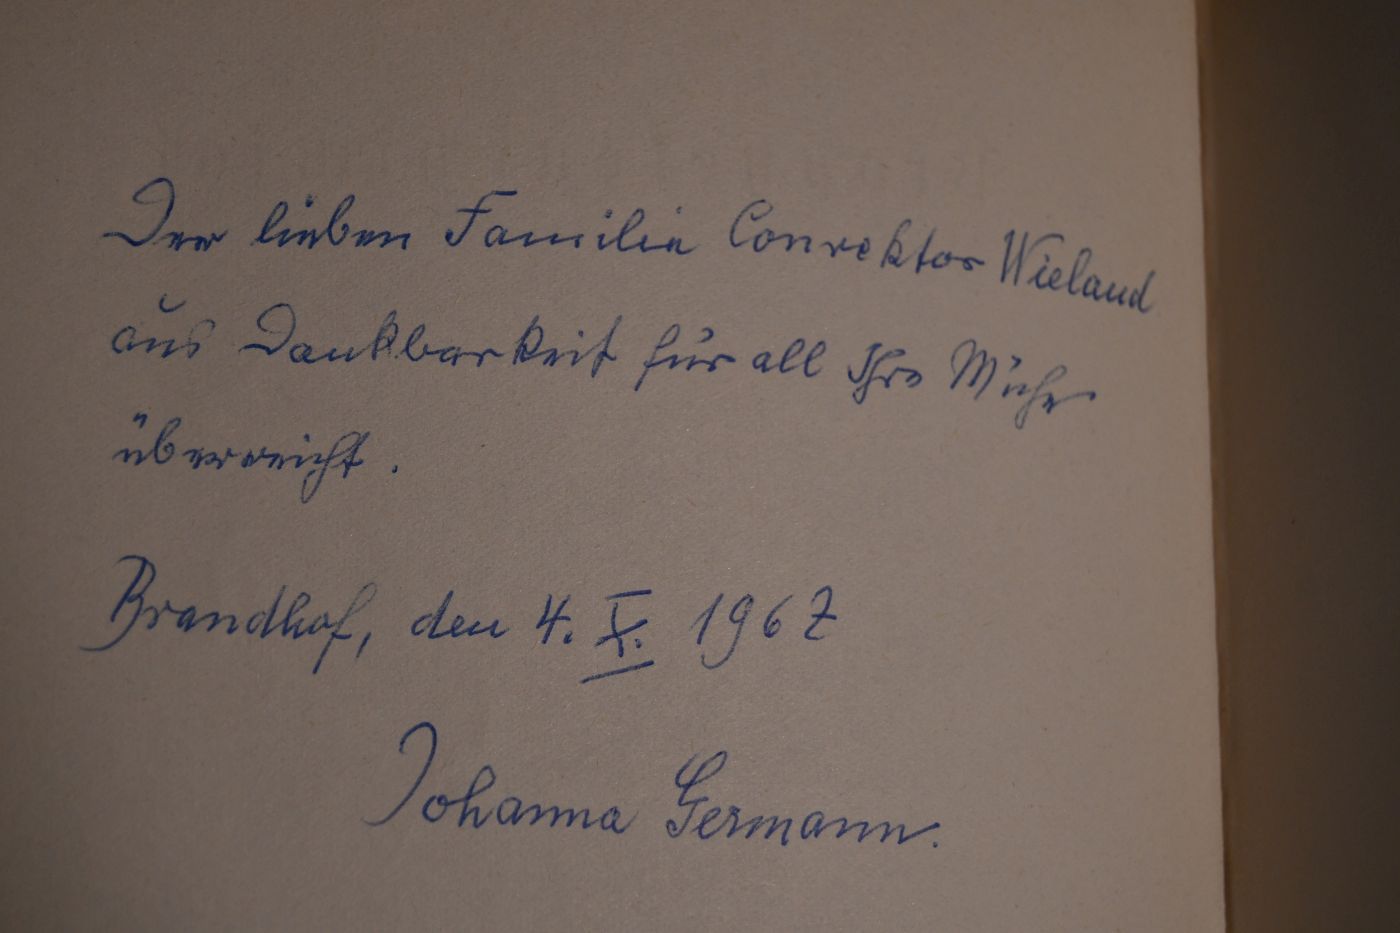 Der lieben Familie Conrektor Wieland
aus Dankbarkeit für all Ihre Mühe
überreicht.
Brandhof, den 4. X. 1967
Johanna Germann.